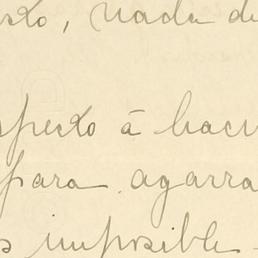 sto, nada de
specto á hacer
para agarra
s imposible